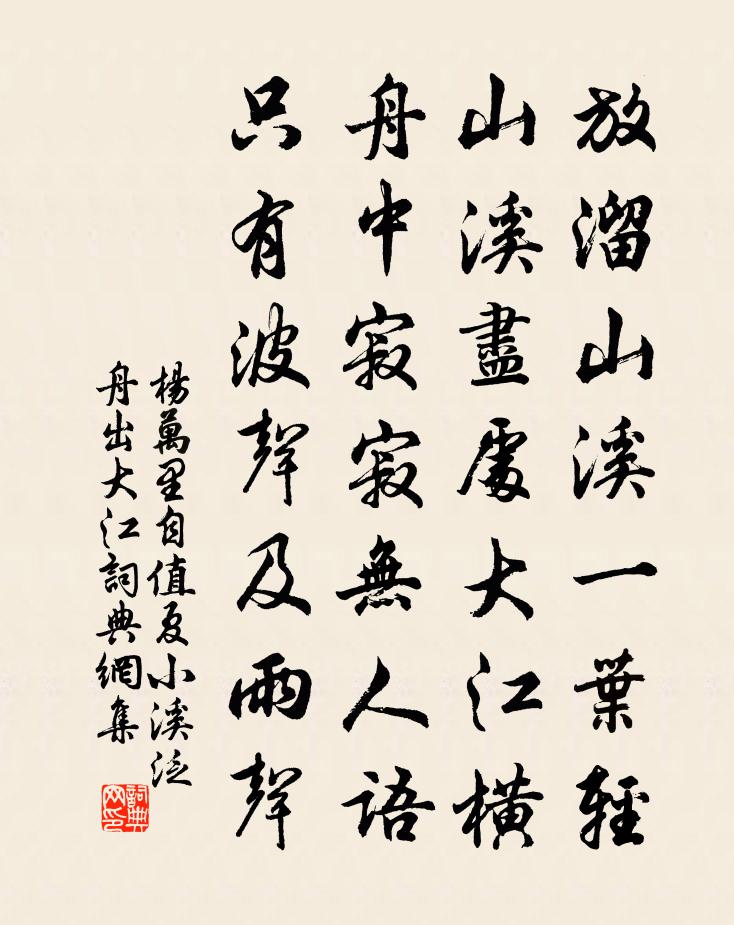 放溜山溪一葉輕
山溪盡處大江橫
舟中寂寂無人語
只有波聲及雨聲
楊萬里自值夏小溪泛
舟出大江詞典網集
詞典
网印